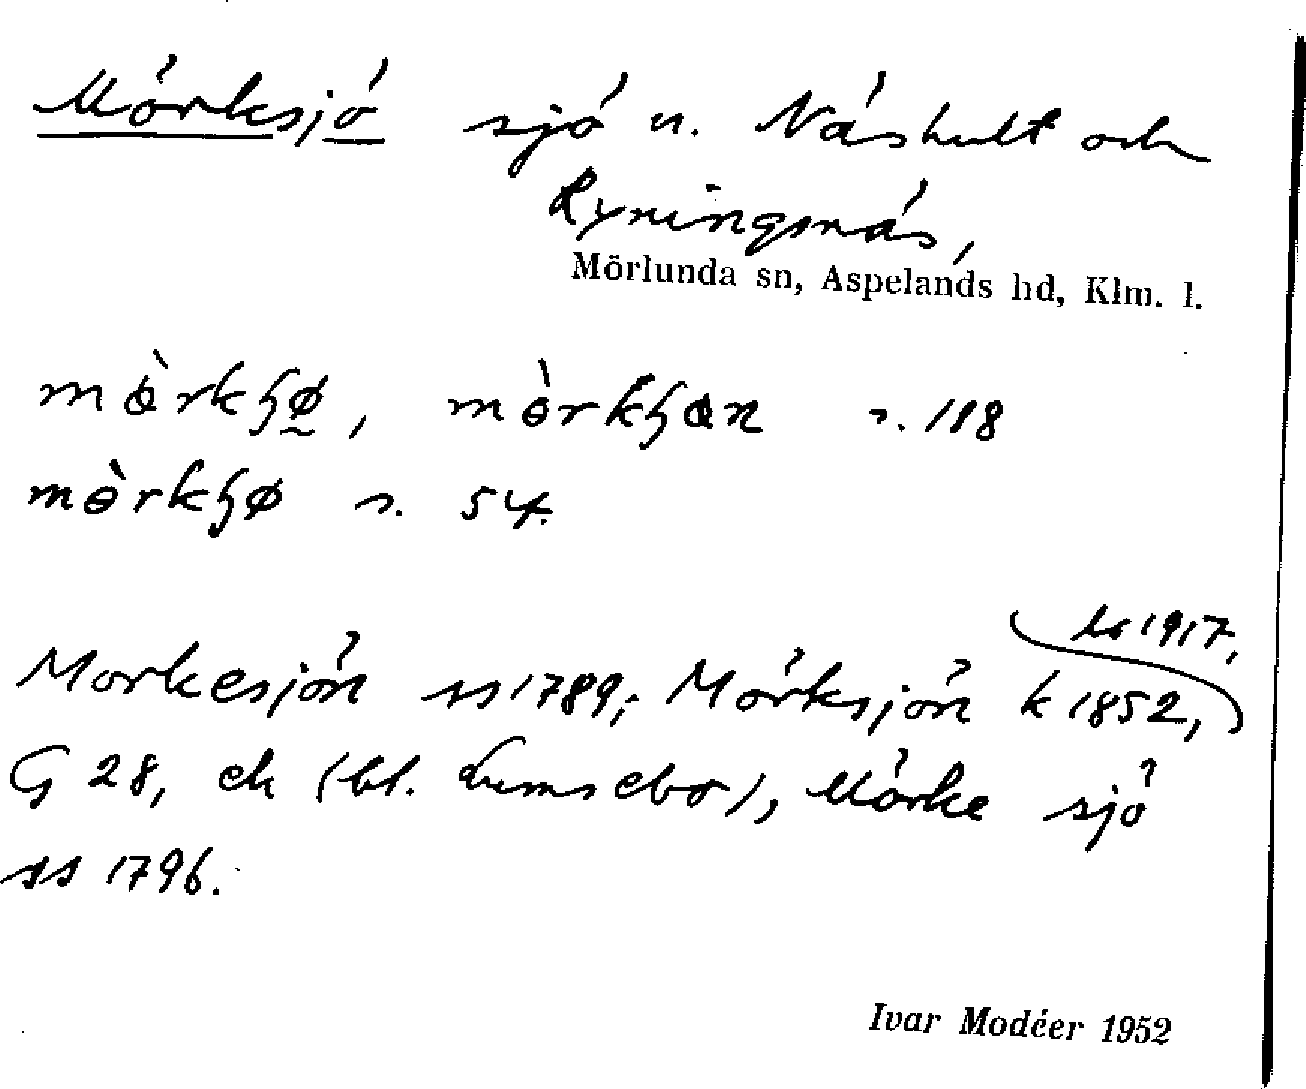 Mörksjö sjö u. Näshult och
Ryningsnäs,
Mörlunda sn, Aspelands hd, Klm. l.
s. 188
s. 54.
ls 1917,
Morkesjön ss 1789; Mörksjön k 1852,
G 28, ek (bl. Lemsebo), Mörke sjö
ss 1796.
Ivar Modéer 1952